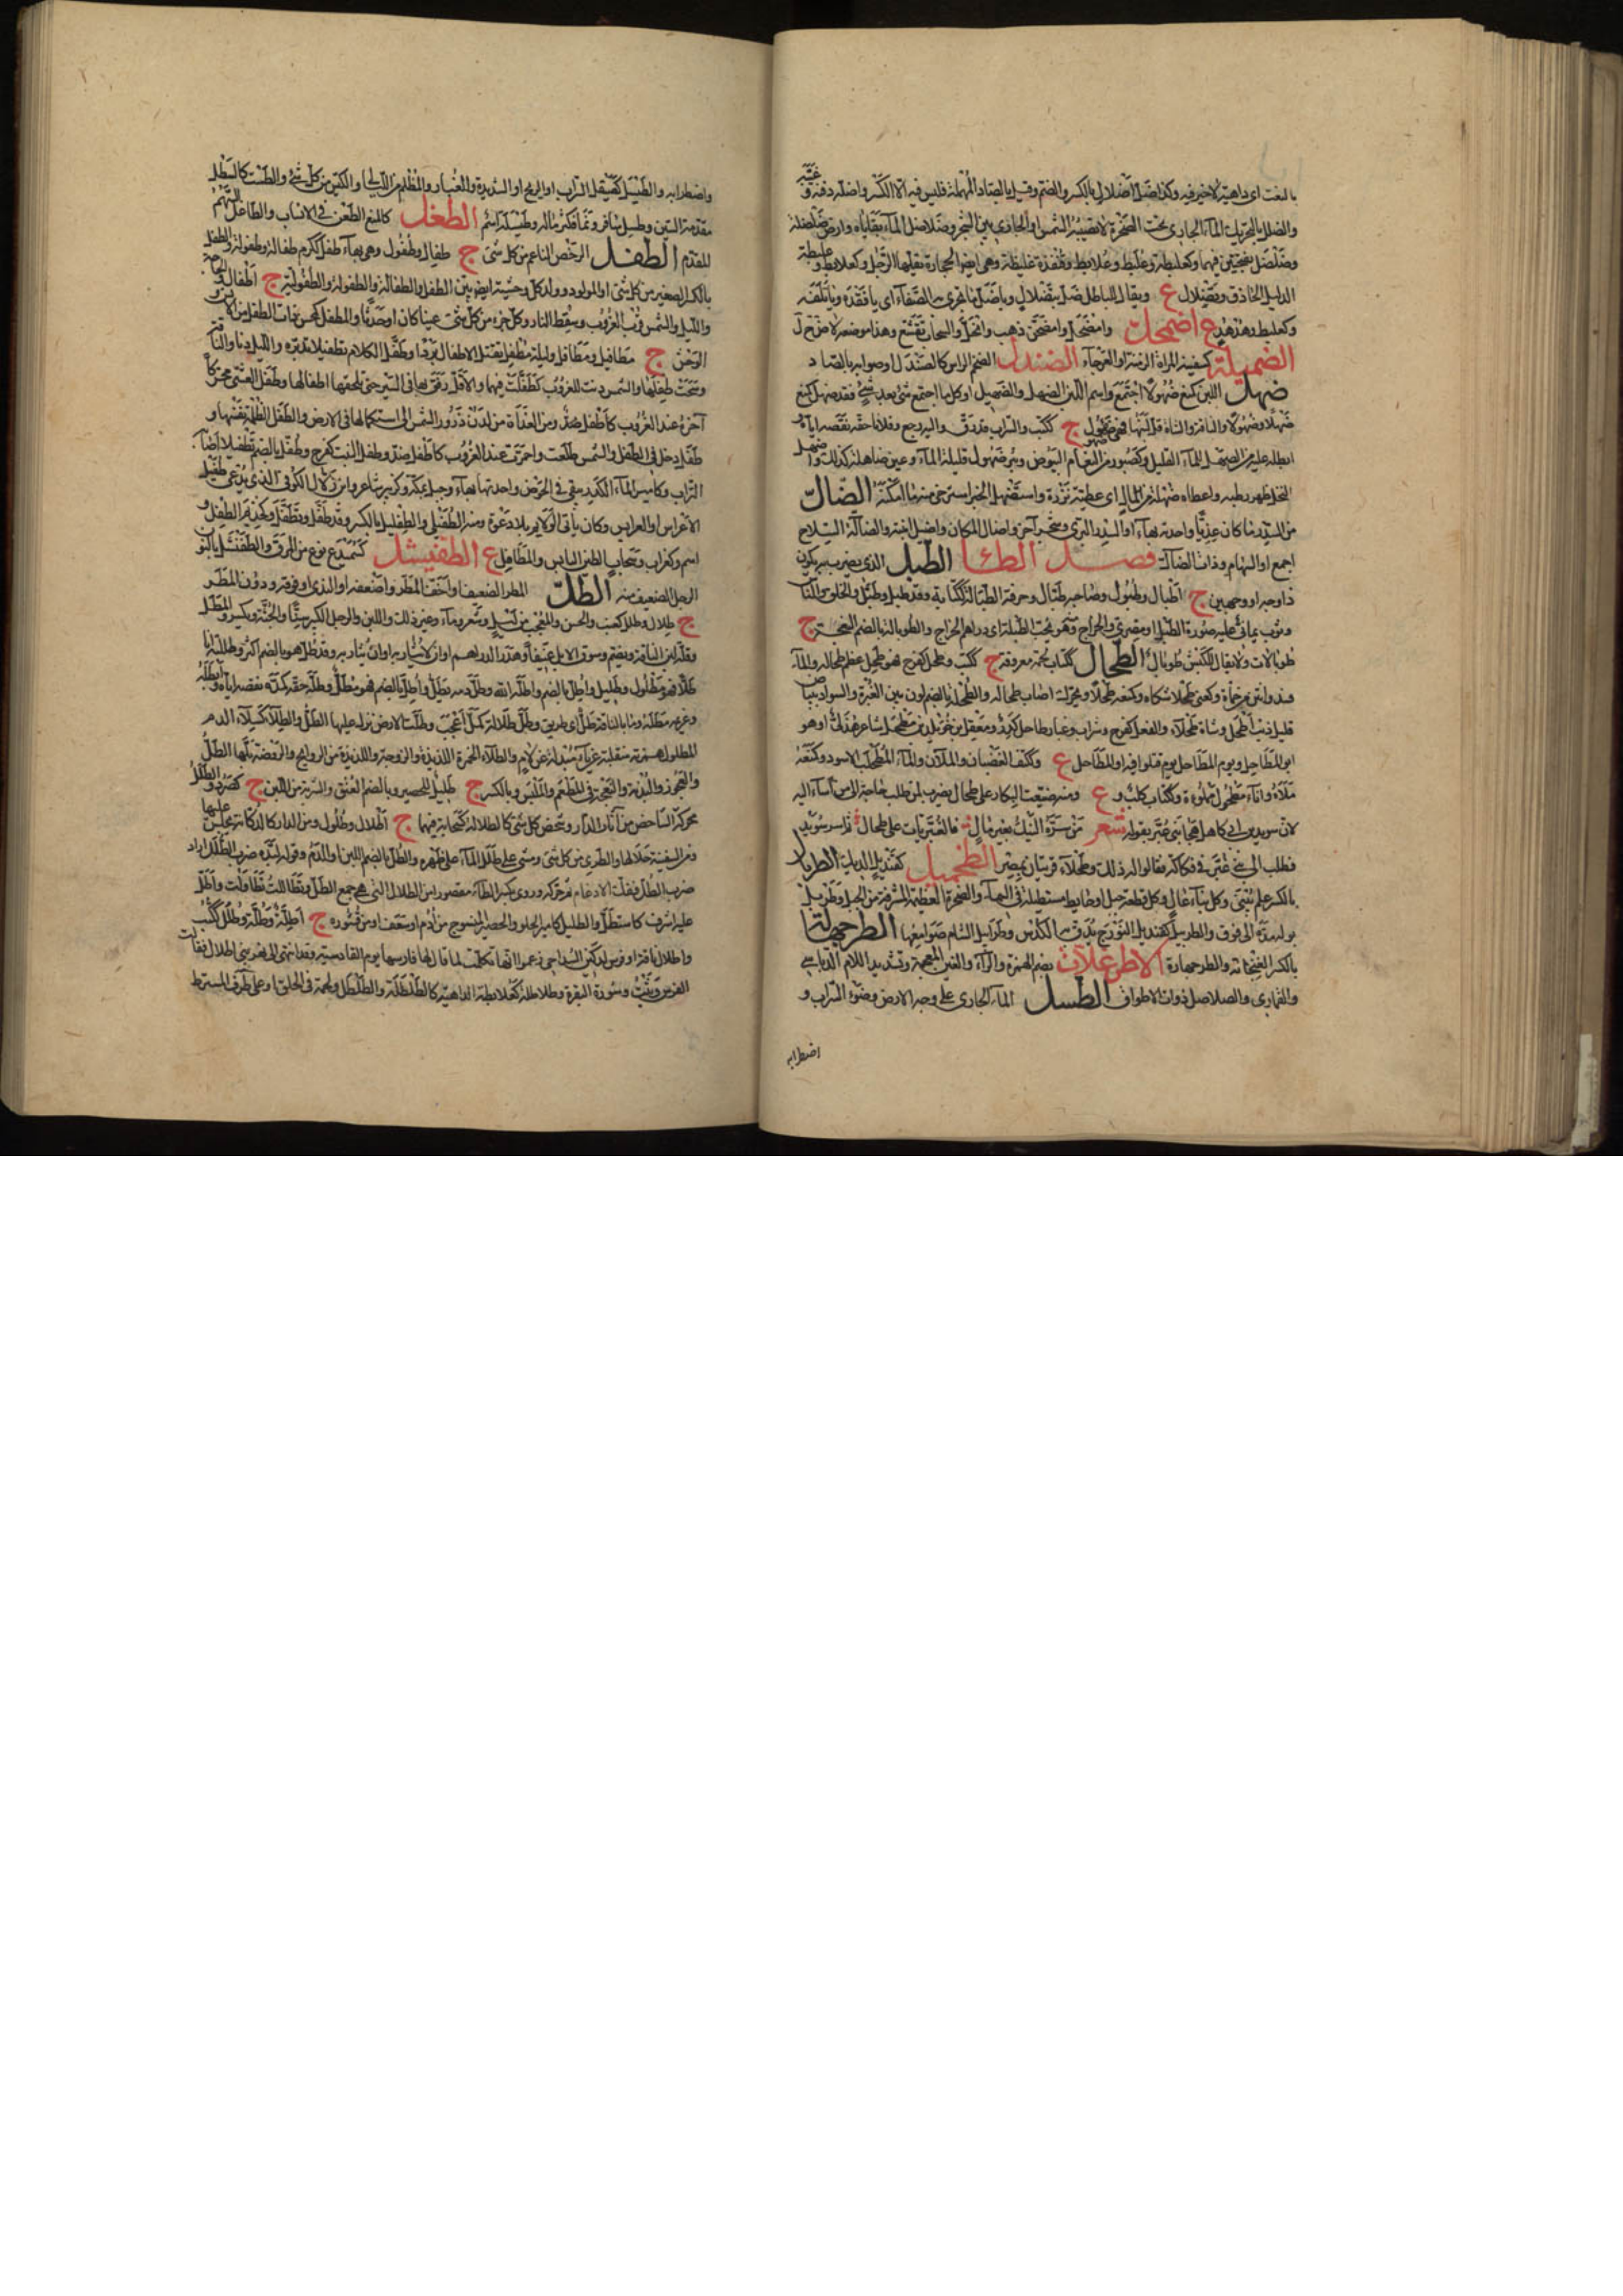 بالنعت اى داهية لاخير فيه وكذا ضل اضلال بالكسر والضم وقيل بالصاد المهملة فليس فيه الا الكسر واضله دفنه وغيبه
والضلل بالتحريك الماء الجارى تحت الصخرة لا تصيبه الشمس او الجارى بين الشجر وضلاضل الماء بقاياه وارض ضلضلة
وضلضل بفتحتين فيهما وكعلبطة وعلبط وعلابط وقنفذة غليظة وهى ايضا الحجارة يقلها الرجل وكعلابط وعلبطة
الدليل الحاذق وتضلال ع ويقال للباطل ضل بتضلال
وكعلبط وهدهد ع اضمحل وامضحل وامضحن ذهب وانحل والسحاب تقشع وهذا موضعه لا ض ح ل
الضميلة كسفينة المراة الزمنة او العرجاء الضندل الضخم الراس كالصندل او صوابه بالصاد
ضهل اللبن كمنع ضهولا اجتمع واسم اللبن الضهل والضهيل او كل ما اجتمع شئ بعد شئ فقد ضهل كمنع
ضهلا وضهولا والناقة والشاة قل لبنها فهى ضهول ج ككتب والشراب قل ورق واليه رجع وفلانا حقه نقصه اياه او
ابطله عليه من الضهل للماء القليل وكصبور من النعام البيوض وبئر ضهول قليلة الماء وعين ضاهلة كذلك واضهل
النخل ظهر رطبه واعطاه ضهلة من المال اى عطية نزرة واستضهل الخبر استرخى منه ما امكنه الضال
من السدر ما كان عذيا واحدته بهاء او السدر البرى وشجر آخر واضال المكان واضيل انبته والضالة السلاح
اجمع او السهام وذات الضالة فصل الطاء الطبل الذى يضرب به يكون
ذا وجه او وجهين ج اطبال وطبول وصاحبه طبال وحرفة الطبالة ككتابة وقد طبل وطبل والخلق والناس
وثوب يمانى عليه صورة الطبل او مصرى والخراج وهو يحب الطبلة اى دراهم الخراج والطوبالة بالضم النعجة ج
طوبالات ولا يقال للكبش طوبال الطحال ككتاب لحمة معروفة ج ككتب وطحل كفرح فهو طحل عظم طحاله والماء
فسد وانتن من حمأة وكعنى طحلا شكاه وكمنعه طحلا ومحركة اصاب طحاله والطحلة بالضم لون بين الغبرة والسواد ببياض
قليل ذئب اطحل وشاة طحلاء والفعل كفرح وشراب وغبار طاحل كدر ومعقل بن خويلد بن مطحل شاعر هذلى او هو
ابو المطاحل ويوم المطاحل يوم قتلوا فيه او المطاحل ع وككتف الغضبان والملآن والماء المطحلب والاسود وكمنعه
ملأه واناء مطحول مملوءة وككتاب كلب و ع ومنه ضيعت البكار على طحال يضرب لمن طلب حاجة الى من اساء اليه
لان سويد بن ابى كاهل هجا بنى غبر بقوله شعر من سره النيك بغير مال فالغبريات على طحال ثم اسر سويد
فطلب الى بنى غبر فى فكاكه فقالوا له ذلك وطحلاء قريتان بمصر الطخميل كقنديل الديك الطربال
بالكسر علم يبنى وكل بناء عال وكل قطعة من جبل او حايط مستطيلة فى السماء والصخرة العظيمة المشرفة من الجبل وطربل
بوله مده الى فوق والطربيل كقنديل النورج يدق به الكدس وطرابيل الشام صوامعها الطرجهالة
بالكسر الفنجانة والطرجهارة الاطرغلات بضم الهمزة والراء والغين المعجمة وتشديد اللام الدباسى
والقمارى والصلاصل ذوات الاطواق الطسل الماء الجارى على وجه الارض وضوء السراب و
اضطرابه
واضطرابه والطيسل كصيقل السراب او الريح او الشديدة والغبار والمظلم من الليالى والكثير من كل شئ والطست كالسطل
الطغل كالمنع الطعن فى الانساب والطاعل السهم
المقوم الطفل الرخص الناعم من كل شئ ج طفال وطفول وهى بهاء طفل ككرم طفالة وطفولة والطفل
بالكسر الصغير من كل شئ او المولود وولد كل وحشية ايضا بين الطفل والطفالة والطفولة والطفولية ج اطفال والحاجة
والليل والشمس قرب الغروب وسقط النار وكل جزء من كل شئ عينا كان او حدثا والمطفل كمحسن ذات الطفل من الانس
والوحش ج مطافيل ومطافل وليلة مطفل يقتل الاطفال بردها وطفل الكلام تطفيلا تدبره والليل دنا والناقة
رشحت طفلها والشمس دنت للغروب كطفلت فيهما والابل رفق بها فى السير حتى تلحقها اطفالها وطفل العشى محركة
آخره عند الغروب كاطفل ضد ومن الغداة من لدن ذرور الشمس الى استكمالها فى الارض والطفل الظلمة نفسها و
طفل دخل فى الطفل والشمس طلعت واحمرت عند الغروب كاطفل ضد وطفل النبت كفرح وطفل بالضم تطفيلا اصابه
التراب وكامير الماء الكدر يبقى فى الحوض واحدته بهاء وجبل بمكة وكزبير شاعر وابن زلال الكوفى الذى يدعى طفيل
الاعراس او العرايس وكان ياتى الولايم بلا دعوة ومنه الطفيلى والطفليل بالكسر وقد طفل وتطفل
اسم وكغراب وسحاب الطين اليابس والمطافل ع الطفيشل كسميدع نوع من المرق والطفنشل بالنون
الرجل الضعيف منه الطل المطر الضعيف او اخف المطر واضعفه او الندى او فوقه ودون المطر
ج طلال وطلل كعنب والحسن والمعجب من ليل وشعر وماء وغير ذلك واللبن والرجل الكبير سنا والحية ويكسر والمطل
وقلة لبن الناقة ويضم وسوق الابل عنيفا وهدر الدم او ان لا يثار به وقد طل هو بالضم
طلا فهو مطلول وطليل واطل بالضم واطله الله وطل دمه يطل واطل بالضم فهو مطل وطله حقه كمده نقصه اياه وابطله
وغريمه مطله وما بالناقة طل اى طرق وطل طلالة كمل اعجب وطلت الارض نزل عليها الطل والطلاء كسلاء الدم
المطلول همزته منقلبة عن ياء مبدلة عن لام والطلة الخمرة اللذيذة والزوجة واللذيذة من الروايح والروضة بلها الطل
والعجوز والبذية والنعمة فى المطعم والملبس وبالكسر ج طليل للحصير وبالضم العنق والشربة من اللبن ج كصرد والطلل
محركة الشاخص من آثار الدار وشخص كل شئ كالطلالة كسحابة فيهما ج اطلال وطلول ومن الدار كالدكانة يجلس عليها
ومن السفينة جلالها والطرى من كل شئ ومشى على طلل الماء على ظهره والطل بالضم اللبن او الدم
عليه اشرف كاستطل والطليل كامير الخلق والحصير المنسوج من دوم او سعف او من قشوره ج اطلة وطلة وطلل ككتب
واطلال ناقة او فرس لبكير الشداخى زعموا انها تكلمت لما قال لها فارسها يوم القادسية وقد انتهى الى نهر ثبى اطلال فقالت
الفرس وثب وسورة البقرة وطلاطلة كعلابطة الداهية كالطلطلة والطلطل ولحمة فى الحلق او على طرف المسترط